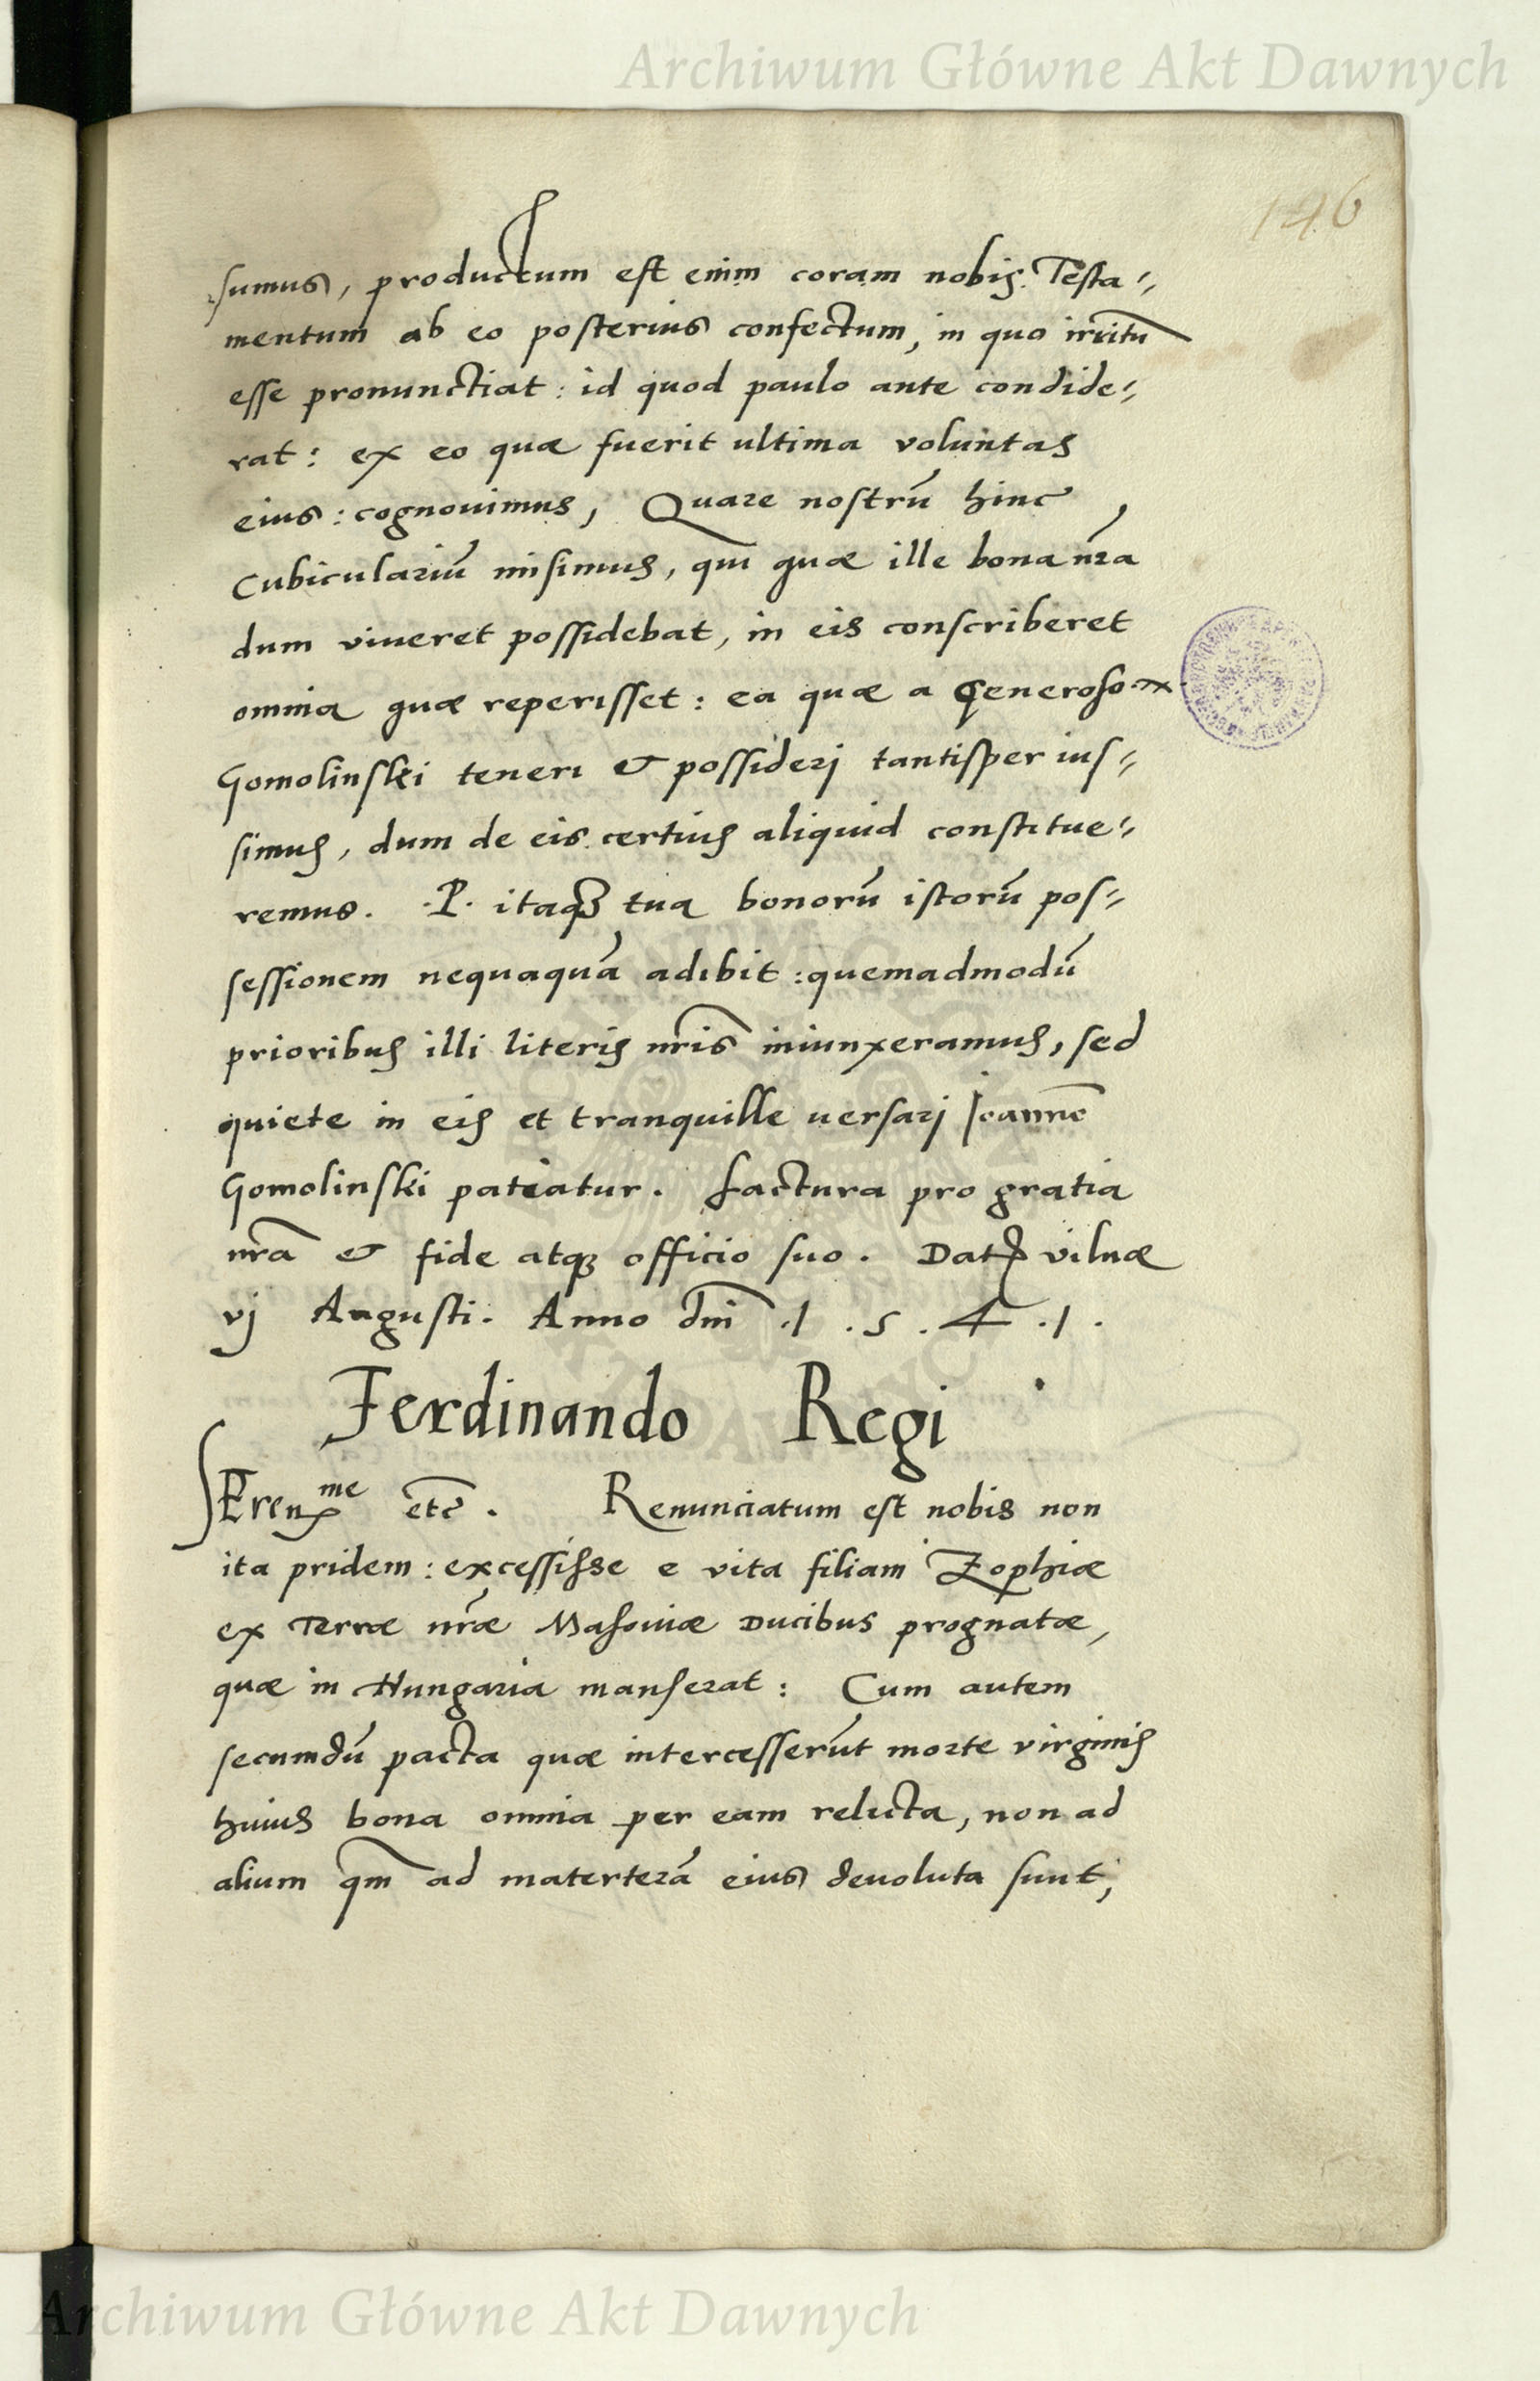 Archiwum Główne Akt Dawnych
146
sumus, productum est enim coram nobis. Testa-
mentum ab eo posterius confectum, in quo irritũ
esse pronunctiat: id quod paulo ante condide-
rat: ex eo quæ fuerit ultima voluntas
eius: cognouimus, Quare nostrũ hinc
Cubiculariũ misimus, qui quæ ille bona nr̃a
dum viueret possidebat, in eis conscriberet
omnia quæ reperisset: ea quæ a Generoso
Gomolinski teneri & possiderj tantisper ius-
simus, dum de eis certius aliquid constitue-
remus. .P. itaqꝫ tua bonorũ istorũ pos-
sessionem nequaquã adibit: quemadmodũ
prioribus illi literis nr̃is iniunxeramus, sed
quiete in eis et tranquille uersarj Joannẽ
Gomolinski patiatur. factura pro gratia
nr̃a & fide atqꝫ officio suo. Datꝭ vilnæ
vj Augusti. Anno dnĩ .1.5.4.1.
Ferdinando Regi
SEren^me etc̃. Renunciatum est nobis non
ita pridem: excessisse e vita filiam Zophiæ
ex Terræ nr̃æ Masouiæ Ducibus prognatæ,
quæ in Hungaria manserat: Cum autem
secumdũ pacta quæ intercesserũt morte virginis
huius bona omnia per eam relicta, non ad
alium qm̃ ad materterã eius deuoluta sunt,
Archiwum Główne Akt Dawnych